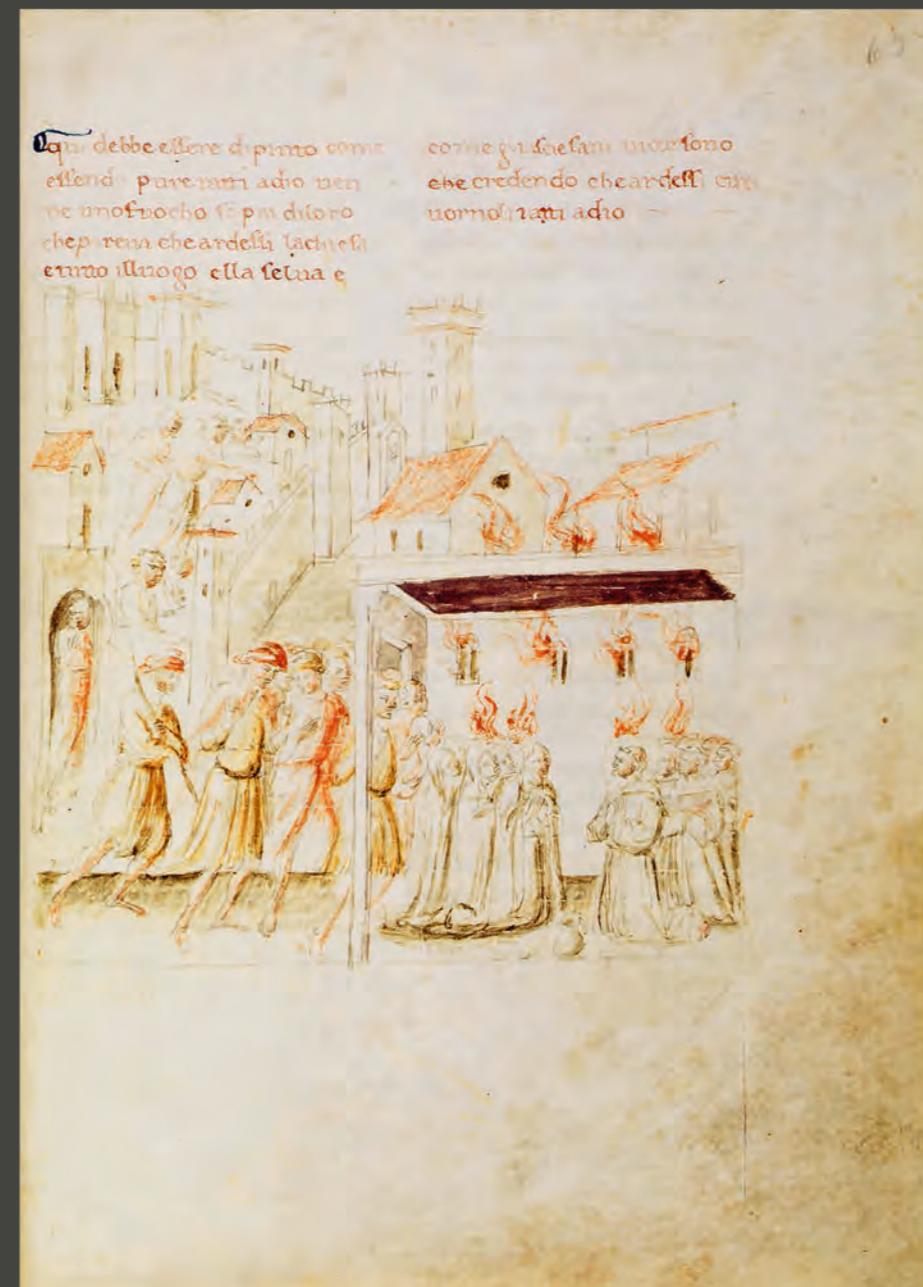 Qqui debbe essere dipinto come
essendo pure ratti adio ven
ne unofuocho sopra diloro
che ardessi lachiesa
etutto illuogo ella selva e
come gli sciesani
che credendo cheardessi
vornoli ratti adio